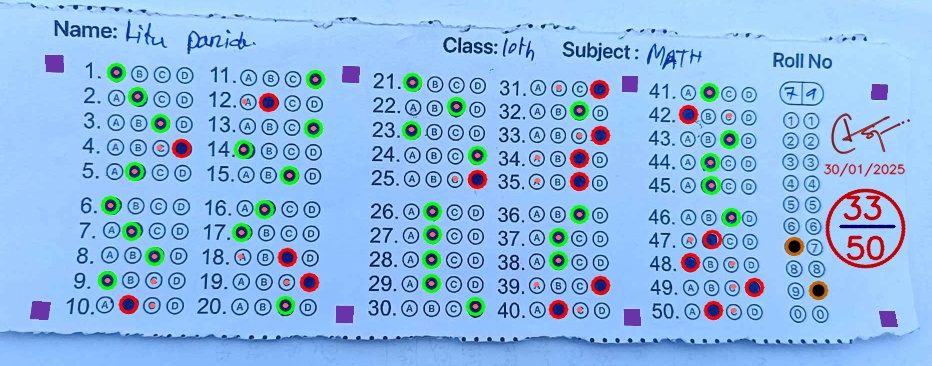 Name: Litu Parida
Class: 10th Subject : MATH
Roll No
1. B C D
2. A C D
3. A B D
4. A B C
5. A C D
6. B C D
7. A C D
8. A B D
9. B C D
10. A C D
11. A B C
12. A C D
13. A B C
14. B C D
15. A B D
16. A C D
17. B C D
18. A B D
19. A B C
20. A B D
21. B C D
22. A B D
23. B C D
24. A B C
25. A B C
26. A C D
27. A C D
28. A C D
29. A C D
30. A B C
31. A B C
32. A B D
33. A B C
34. A B D
35. A B D
36. A B D
37. A C D
38. A C D
39. A B C
40. A C D
41. A C D
42. B C D
43. A B D
44. A C D
45. A C D
46. A B D
47. A C D
48. B C D
49. A B C
50. A C D
7 9
1 1
2 2
3 3
4 4
5 5
6 6
7
8 8
9
0 0
30/01/2025
33
50